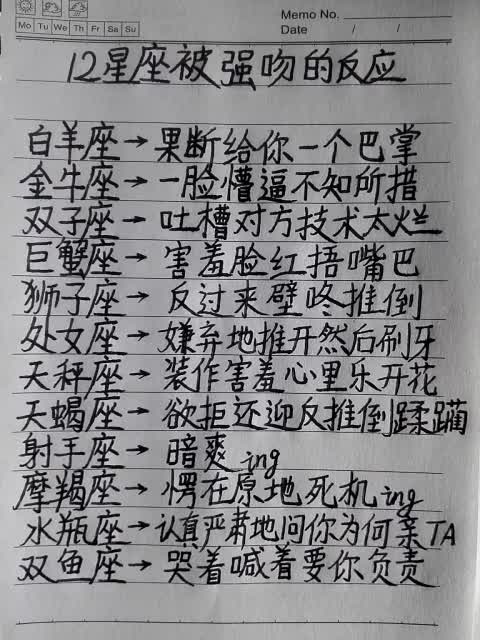 Memo No.
Mo Tu We Th Fr Sa Su
Date / /
12星座被强吻的反应
白羊座→果断给你一个巴掌
金牛座→一脸懵逼不知所措
双子座→吐槽对方技术太烂
巨蟹座→害羞脸红捂嘴巴
狮子座→反过来壁咚推倒
处女座→嫌弃地推开然后刷牙
天秤座→装作害羞心里乐开花
天蝎座→欲拒还迎反推倒蹂躏
射手座→暗爽ing
摩羯座→愣在原地死机ing
水瓶座→认真严肃地问你为何亲TA
双鱼座→哭着喊着要你负责